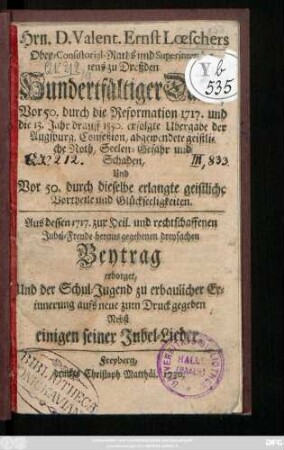 Hrn. D. Valent. Ernst Lœschers
Ober-Consistorial-Raths und Superinten-
tens zu Dreßden
Hundertfältiger
Vor 50. durch die Reformation 1717. und
die 13. Jahr drauff 1530. erfolgte Ubergabe der
Augspurg. Confeßion, abgewendete geistli-
che Noth, Seelen-Gefahr und
Schaden,
Und
Vor 50. durch dieselbe erlangte geistliche
Vortheile und Glückseeligkeiten.
Aus dessen 1717. zur Heil. und rechtschaffenen
Jubel-Freude heraus gegebenen dreyfachen
Beytrag
erborget,
Und der Schul-Jugend zu erbaulicher Er-
innerung aufs neue zum Druck gegeben
Nebst
einigen seiner Jubel-Lieder.
Freyberg,
Christoph Matthäi, 1730.
Y b
535
III, 833
212.
BIBLIOTHECA
PONICKAVIANA
HALLE
(SAALE)